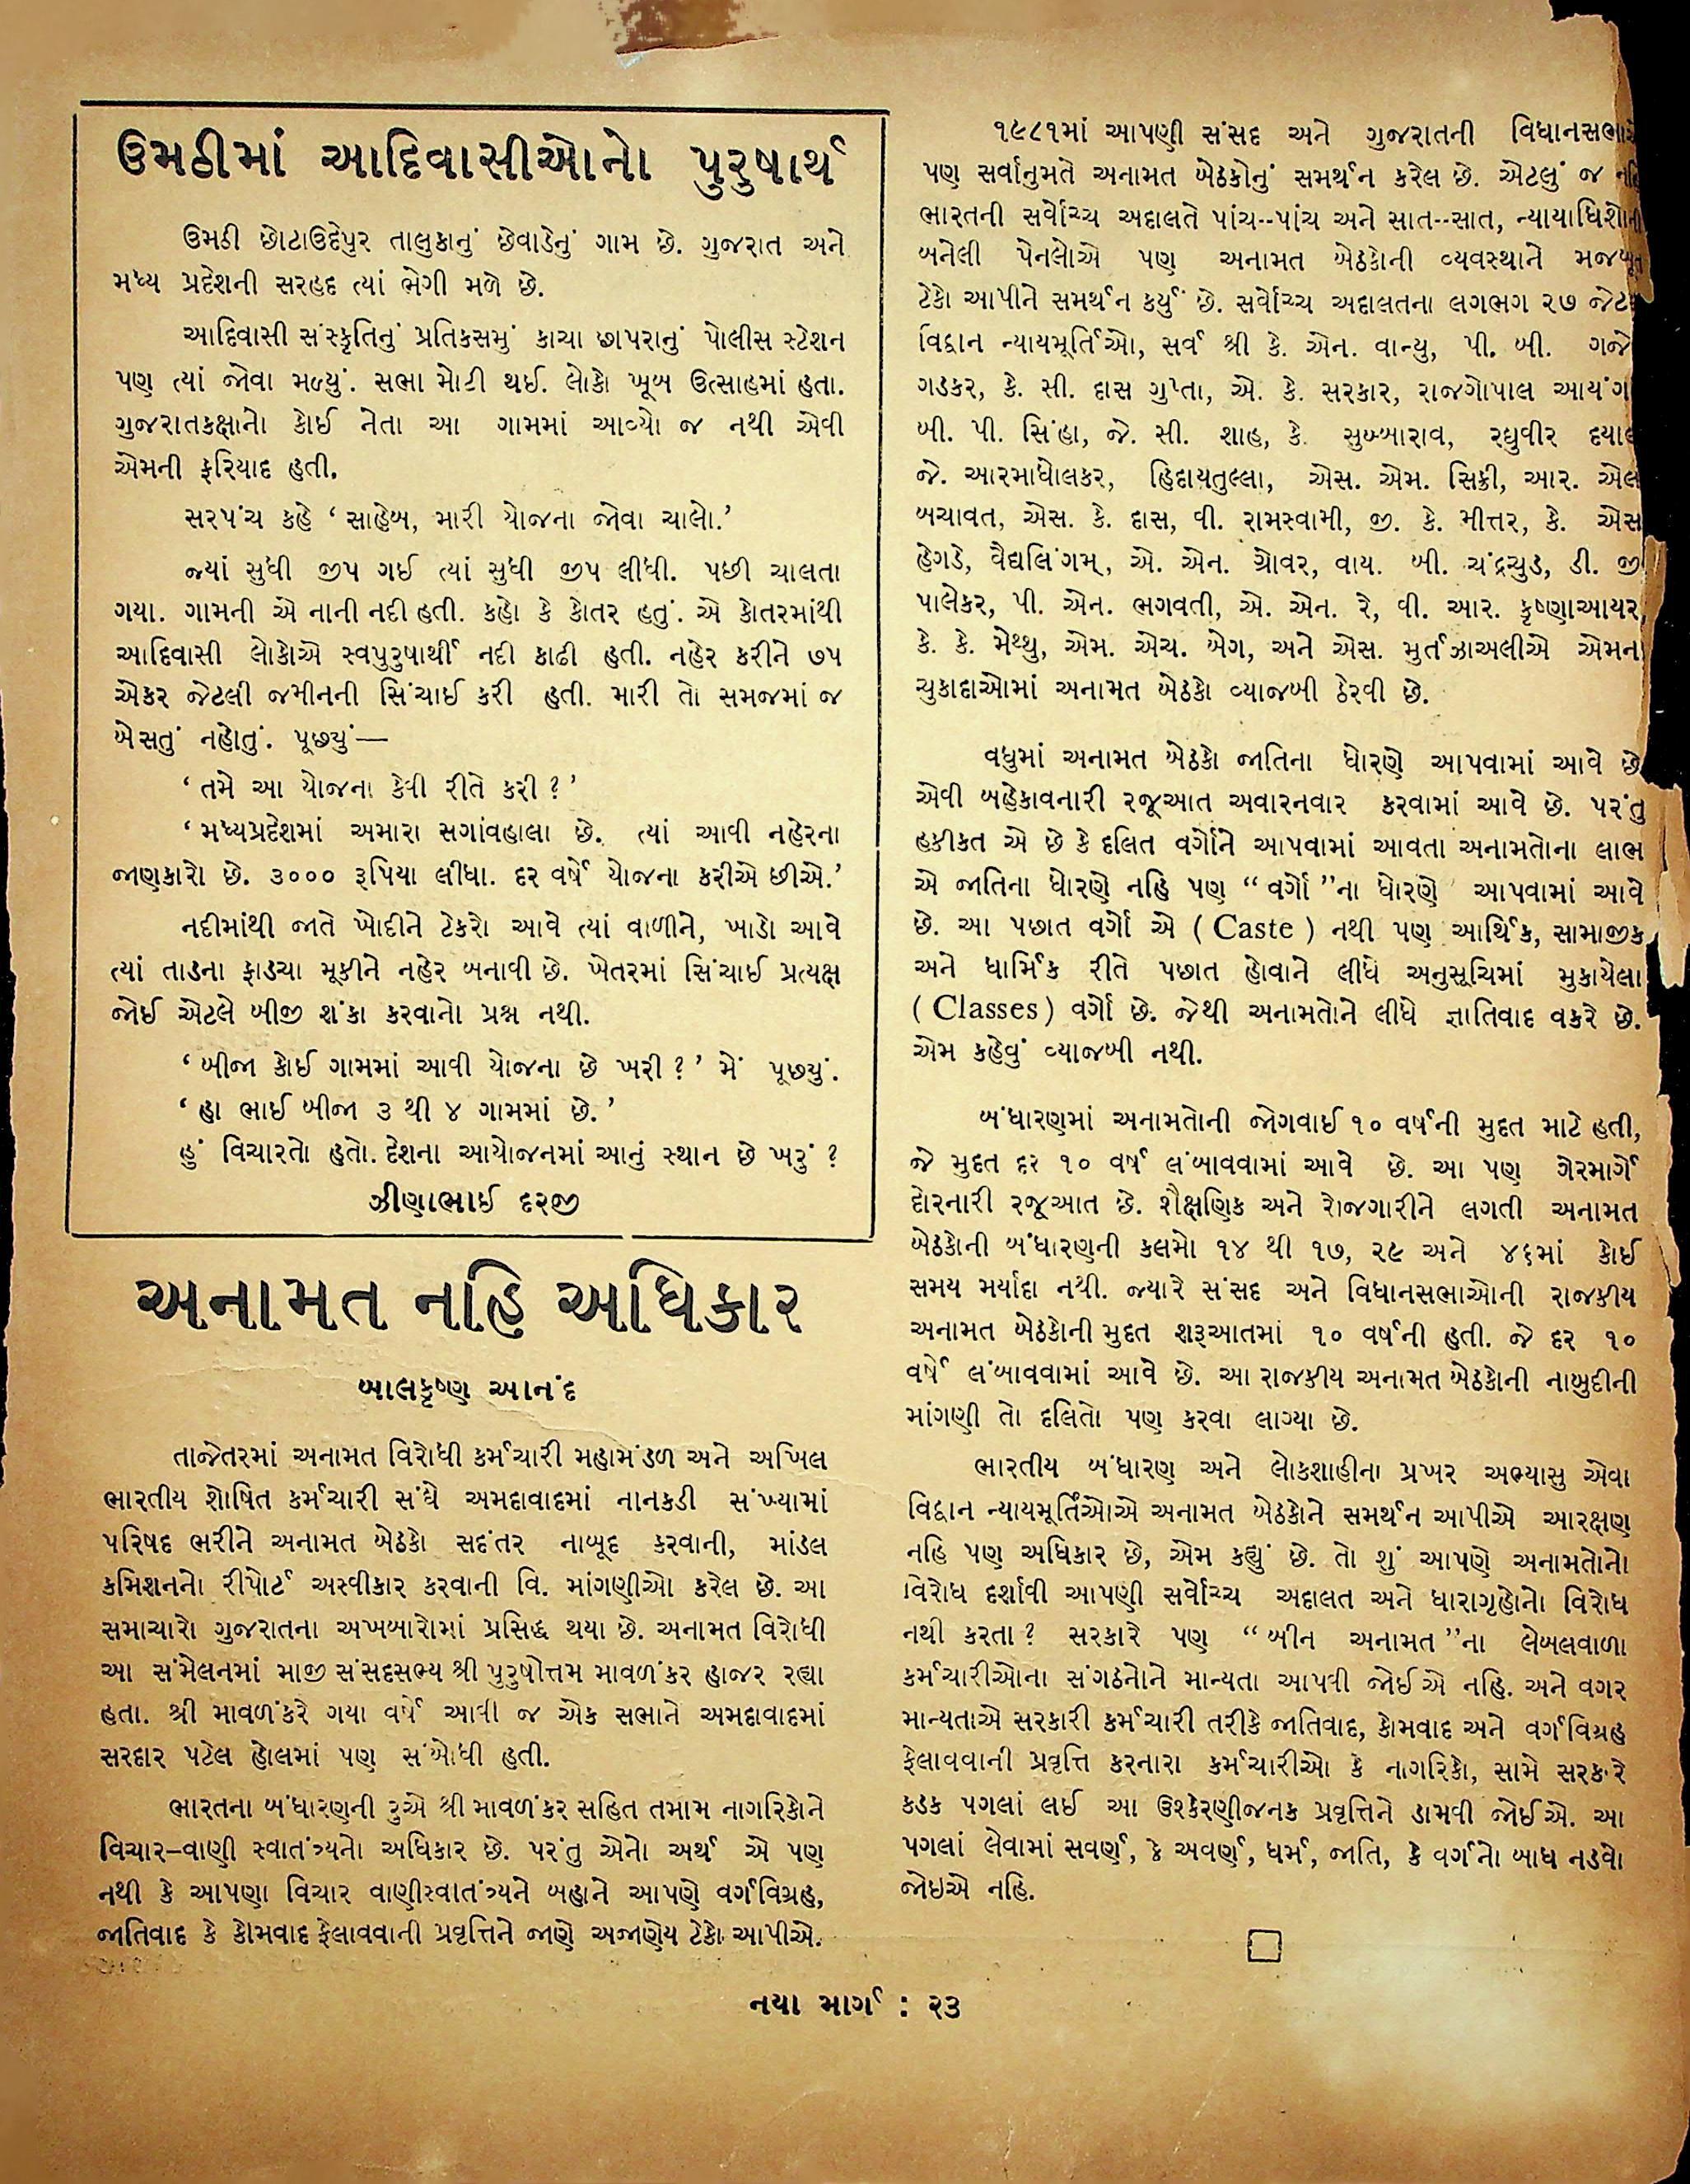 ઉમઠીમાં આદિવાસીઓનો પુરુષાર્થ
ઉમઠી છોટાઉદેપુર તાલુકાનું છેવાડેનું ગામ છે. ગુજરાત અને
મધ્ય પ્રદેશની સરહદ ત્યાં ભેગી મળે છે.
આદિવાસી સંસ્કૃતિનું પ્રતિકસમું કાચા છાપરાનું પોલીસ સ્ટેશન
પણ ત્યાં જોવા મળ્યું. સભા મોટી થઈ. લોકો ખૂબ ઉત્સાહમાં હતા.
ગુજરાતકક્ષાનો કોઈ નેતા આ ગામમાં આવ્યો જ નથી એવી
એમની ફરિયાદ હતી.
સરપંચ કહે ‘સાહેબ, મારી યોજના જોવા ચાલો.’
જ્યાં સુધી જીપ ગઈ ત્યાં સુધી જીપ લીધી. પછી ચાલતા
ગયા. ગામની એ નાની નદી હતી. કહો કે કોતર હતું. એ કોતરમાંથી
આદિવાસી લોકોએ સ્વપુરુષાર્થી નદી કાઢી હતી. નહેર કરીને ૭૫
એકર જેટલી જમીનની સિંચાઈ કરી હતી. મારી તો સમજમાં જ
બેસતું નહોતું. પૂછયું—
‘તમે આ યોજના કેવી રીતે કરી?’
‘મધ્યપ્રદેશમાં અમારા સગાંવહાલા છે. ત્યાં આવી નહેરના
જાણકારો છે. ૩૦૦૦ રૂપિયા લીધા. દર વર્ષે યોજના કરીએ છીએ.’
નદીમાંથી જાતે ખોદીને ટેકરો આવે ત્યાં વાળીને, ખાડો આવે
ત્યાં તાડના ફાડચા મૂકીને નહેર બનાવી છે. ખેતરમાં સિંચાઈ પ્રત્યક્ષ
જોઈ એટલે બીજી શંકા કરવાનો પ્રશ્ન નથી.
‘બીજા કોઈ ગામમાં આવી યોજના છે ખરી?’ મેં પૂછયું.
‘હા ભાઈ બીજા ૩ થી ૪ ગામમાં છે.’
હું વિચારતો હતો. દેશના આયોજનમાં આનું સ્થાન છે ખરું ?
ઝીણાભાઈ દરજી
અનામત નહિ અધિકાર
બાલકૃષ્ણ આનંદ
તાજેતરમાં અનામત વિરોધી કર્મચારી મહામંડળ અને અખિલ
ભારતીય શોષિત કર્મચારી સંઘે અમદાવાદમાં નાનકડી સંખ્યામાં
પરિષદ ભરીને અનામત બેઠકો સદંતર નાબૂદ કરવાની, માંડલ
કમિશનનો રીપોર્ટ અસ્વીકાર કરવાની વિ. માંગણીઓ કરેલ છે. આ
સમાચારો ગુજરાતના અખબારોમાં પ્રસિદ્ધ થયા છે. અનામત વિરોધી
આ સંમેલનમાં માજી સંસદસભ્ય શ્રી પુરુષોત્તમ માવળંકર હાજર રહ્યા
હતા. શ્રી માવળંકરે ગયા વર્ષે આવી જ એક સભાને અમદાવાદમાં
સરદાર પટેલ હોલમાં પણ સંબોધી હતી.
ભારતના બંધારણની રુએ શ્રી માવળંકર સહિત તમામ નાગરિકોને
વિચાર–વાણી સ્વાતંત્ર્યનો અધિકાર છે. પરંતુ એનો અર્થ એ પણ
નથી કે આપણા વિચાર વાણીસ્વાતંત્ર્યને બહાને આપણે વર્ગવિગ્રહ,
જાતિવાદ કે કોમવાદ ફેલાવવાની પ્રવૃત્તિને જાણે અજાણેય ટેકો આપીએ.
૧૯૮૧માં આપણી સંસદ અને ગુજરાતની
પણ સર્વાનુમતે અનામત બેઠકોનું સમર્થન કરેલ છે. એટલું જ
ભારતની સર્વોચ્ચ અદાલતે પાંચ--પાંચ અને સાત--સાત,
બનેલી પેનલોએ પણ અનામત બેઠકોની વ્યવસ્થાને
ટેકો આપીને સમર્થન કર્યું છે. સર્વોચ્ચ અદાલતના લગભગ ૨૭
વિદ્વાન ન્યાયમૂર્તિઓ, સર્વ શ્રી કે. એન. વાન્ચુ, પી. બી. ગજે
ગડકર, કે. સી. દાસ ગુપ્તા, એ. કે. સરકાર, રાજગોપાલ આયંગ
બી. પી. સિંહા, જે. સી. શાહ, કે. સુબ્બારાવ, રઘુવીર
જે. આરમાધોલકર, હિદાયતુલ્લા, એસ. એમ. સિક્રી, આર. એલ
બચાવત, એસ. કે. દાસ, વી. રામસ્વામી, જી. કે. મીત્તર, કે. એસ
હેગડે, વૈદ્યલિંગમ્, એ. એન. ગ્રોવર, વાય. બી. ચંદ્રચુડ, ડી. જી
પાલેકર, પી. એન. ભગવતી, એ. એન. રે, વી. આર. કૃષ્ણાઆયર,
કે. કે. મેથ્થુ, એમ. એચ. બેગ, અને એસ. મુર્તઝાઅલીએ એમના
ચુકાદાઓમાં અનામત બેઠકો વ્યાજબી ઠેરવી છે.
વધુમાં અનામત બેઠકો જાતિના ધોરણે આપવામાં આવે છે
એવી બહેકાવનારી રજૂઆત અવારનવાર કરવામાં આવે છે. પરંતુ
હકીકત એ છે કે દલિત વર્ગોને આપવામાં આવતા અનામતોના લાભ
એ જાતિના ધોરણે નહિ પણ “વર્ગો”ના ધોરણે આપવામાં આવે
છે. આ પછાત વર્ગો એ (Caste) નથી પણ આર્થિક, સામાજીક
અને ધાર્મિક રીતે પછાત હોવાને લીધે અનુસૂચિમાં મુકાયેલા
(Classes) વર્ગો છે. જેથી અનામતોને લીધે જ્ઞાતિવાદ વકરે છે.
એમ કહેવું વ્યાજબી નથી.
બંધારણમાં અનામતોની જોગવાઈ ૧૦ વર્ષની મુદત માટે હતી,
જે મુદત દર ૧૦ વર્ષ લંબાવવામાં આવે છે. આ પણ ગેરમાર્ગે
દોરનારી રજૂઆત છે. શૈક્ષણિક અને રોજગારીને લગતી અનામત
બેઠકોની બંધારણની કલમો ૧૪ થી ૧૭, ૨૯ અને ૪૬માં કોઈ
સમય મર્યાદા નથી. જ્યારે સંસદ અને વિધાનસભાઓની રાજકીય
અનામત બેઠકોની મુદત શરૂઆતમાં ૧૦ વર્ષની હતી. જે દર ૧૦
વર્ષે લંબાવવામાં આવે છે. આ રાજકીય અનામત બેઠકોની નાબુદીની
માંગણી તો દલિતો પણ કરવા લાગ્યા છે.
ભારતીય બંધારણ અને લોકશાહીના પ્રખર અભ્યાસુ એવા
વિદ્વાન ન્યાયમૂર્તિઓએ અનામત બેઠકોને સમર્થન આપીએ આરક્ષણ
નહિ પણ અધિકાર છે, એમ કહ્યું છે. તો શું આપણે અનામતોનો
વિરોધ દર્શાવી આપણી સર્વોચ્ચ અદાલત અને ધારાગૃહોનો વિરોધ
નથી કરતા? સરકારે પણ “બીન અનામત”ના લેબલવાળા
કર્મચારીઓના સંગઠનોને માન્યતા આપવી જોઈએ નહિ. અને વગર
માન્યતાએ સરકારી કર્મચારી તરીકે જાતિવાદ, કોમવાદ અને વર્ગવિગ્રહ
ફેલાવવાની પ્રવૃત્તિ કરનારા કર્મચારીઓ કે નાગરિકો, સામે સરકારે
કડક પગલાં લઈ આ ઉશ્કેરણીજનક પ્રવૃત્તિને ડામવી જોઈએ. આ
પગલાં લેવામાં સવર્ણ, કે અવર્ણ, ધર્મ, જાતિ, કે વર્ગનો બાધ નડવો
જોઇએ નહિ.
નયા માર્ગ : ૨૩